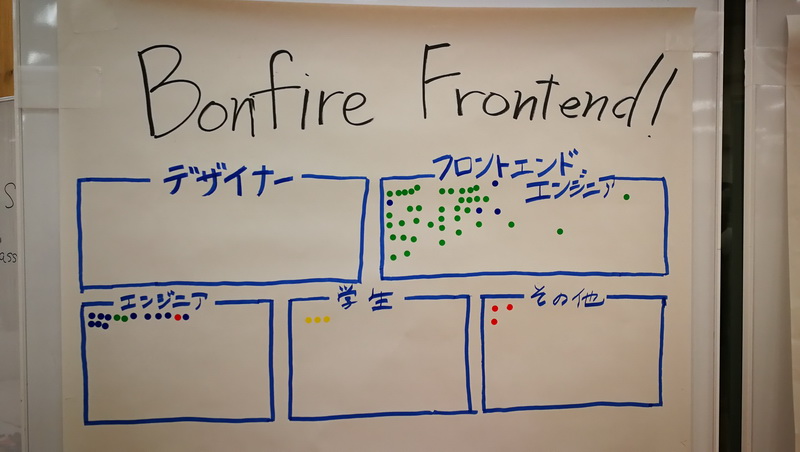 Bonfire Frontend!
デザイナー
フロントエンド
エンジニア
エンジニア
学生
その他
S
ass